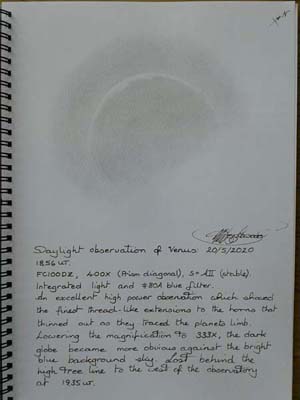 Daylight observation of Venus 20/5/2020
1856 UT.
FC100DZ, 400X (Prism diagonal), S= AII (stable).
Integrated light and #80A blue filter.
An excellent high power observation which showed
the finest thread-like extensions to the horns that
thinned out as they traced the planets limb.
Lowering the magnification to 333X, the dark
globe became more obvious against the bright
blue background sky. Lost behind the
high tree line to the west of the observatory
at 1935 UT.